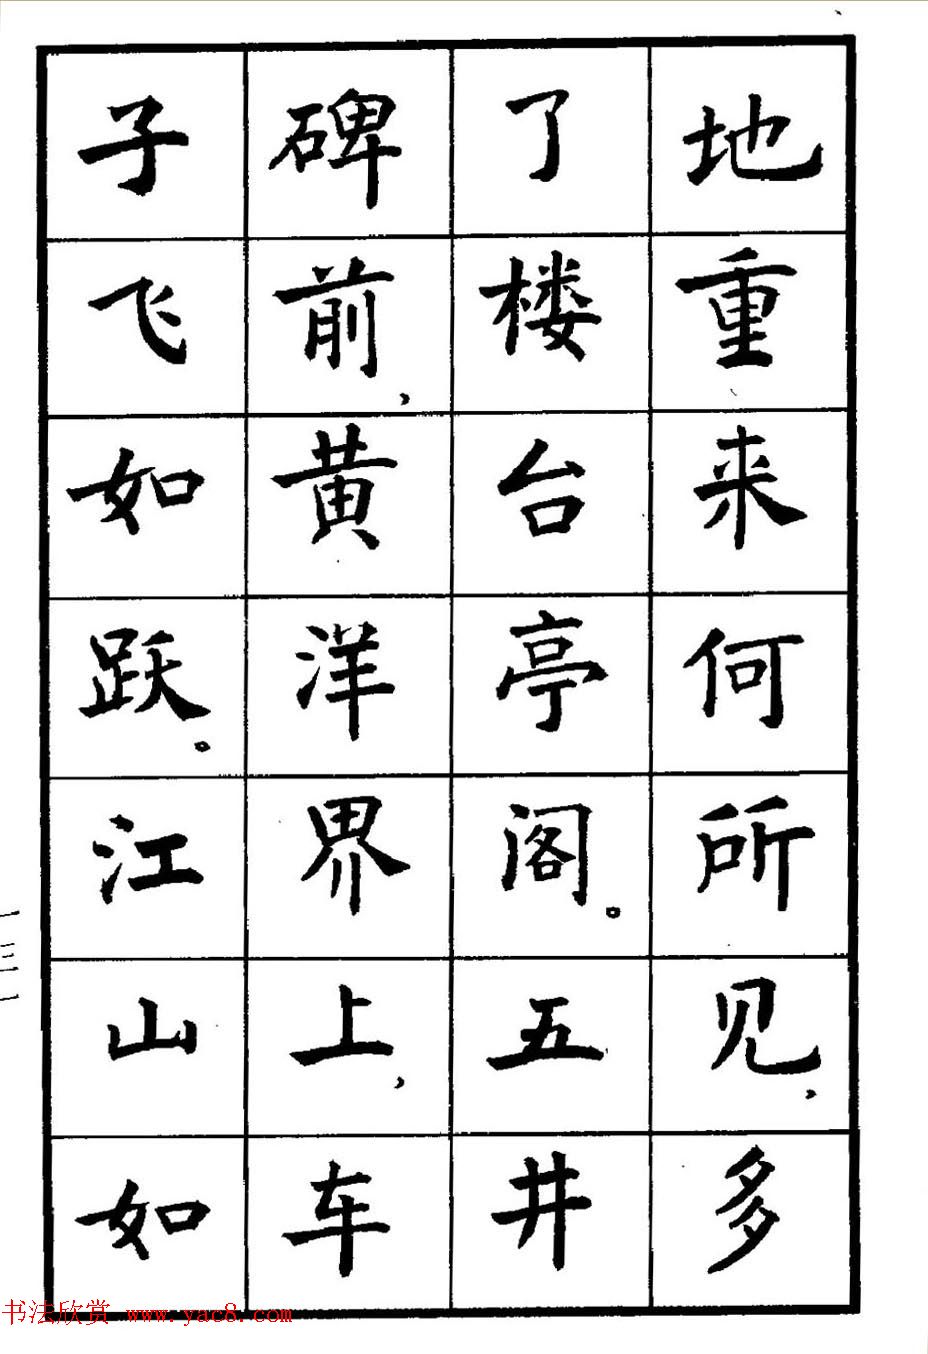 地重来何所见，多
了楼台亭阁。五井
碑前，黄洋界上，车
子飞如跃。江山如
一三一
书法欣赏 www.yac8.com